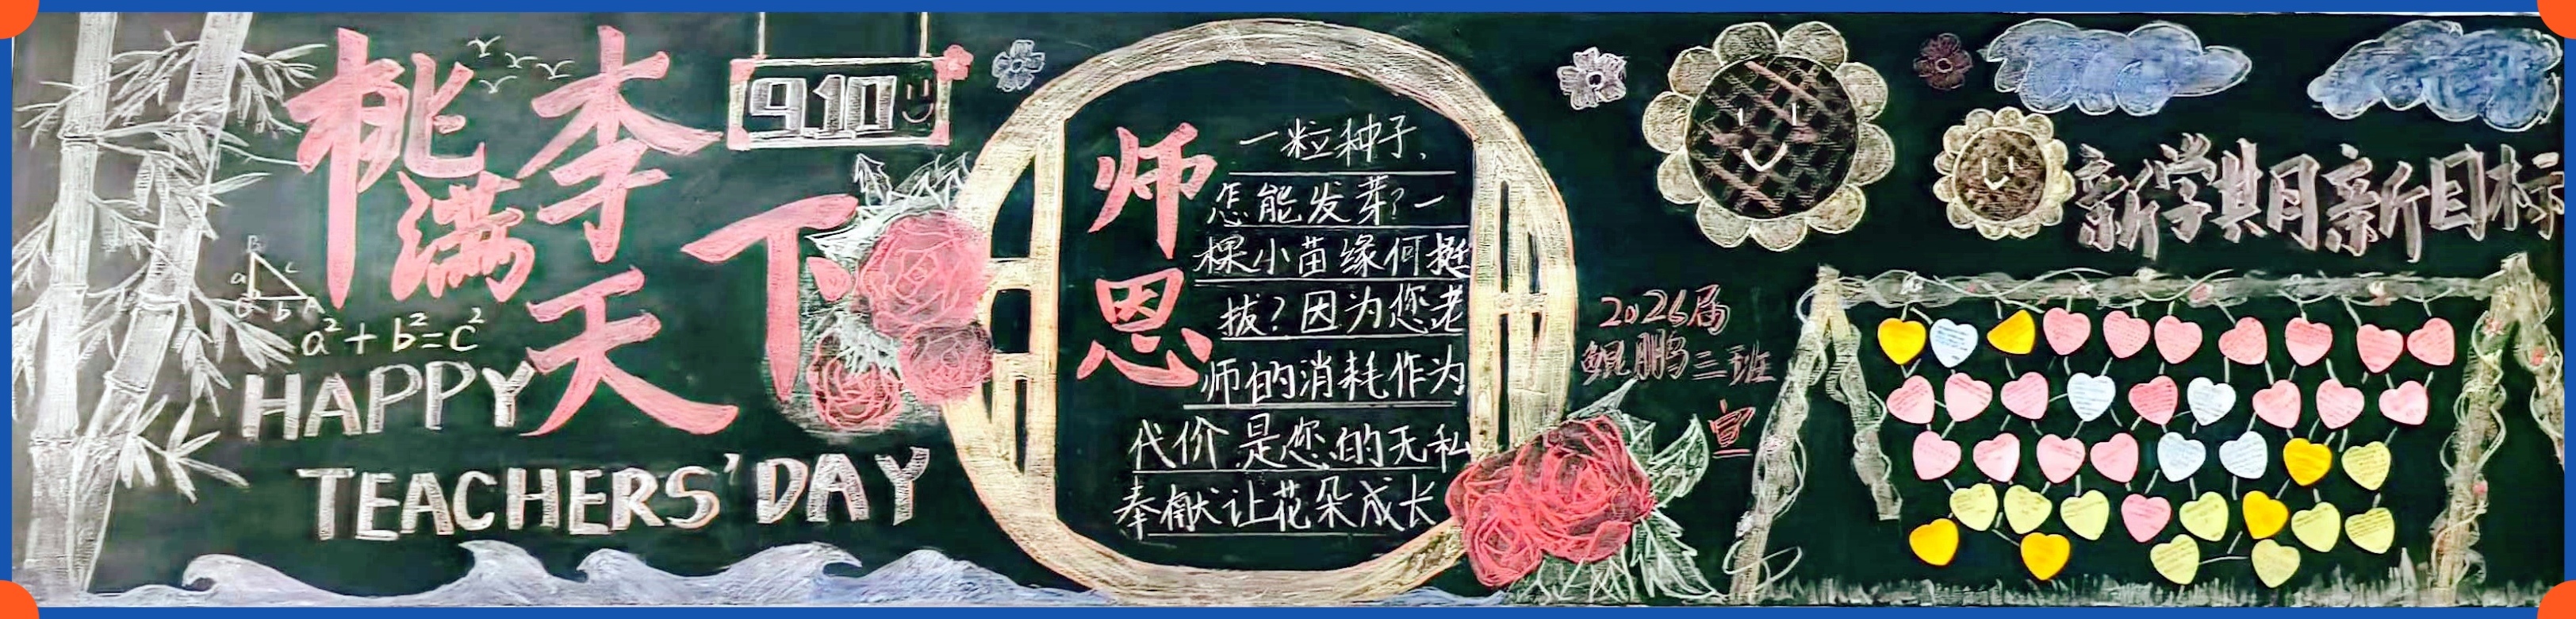 桃李
满
天
下
910
B
a
c
C
b
A
a²+b²=c²
HAPPY
TEACHERS' DAY
师恩
一粒种子,
怎能发芽?一
棵小苗缘何挺
拔?因为您老
师的消耗作为
代价是您的无私
奉献让花朵成长
2026届
鲲鹏三班
宣
新学期新目标